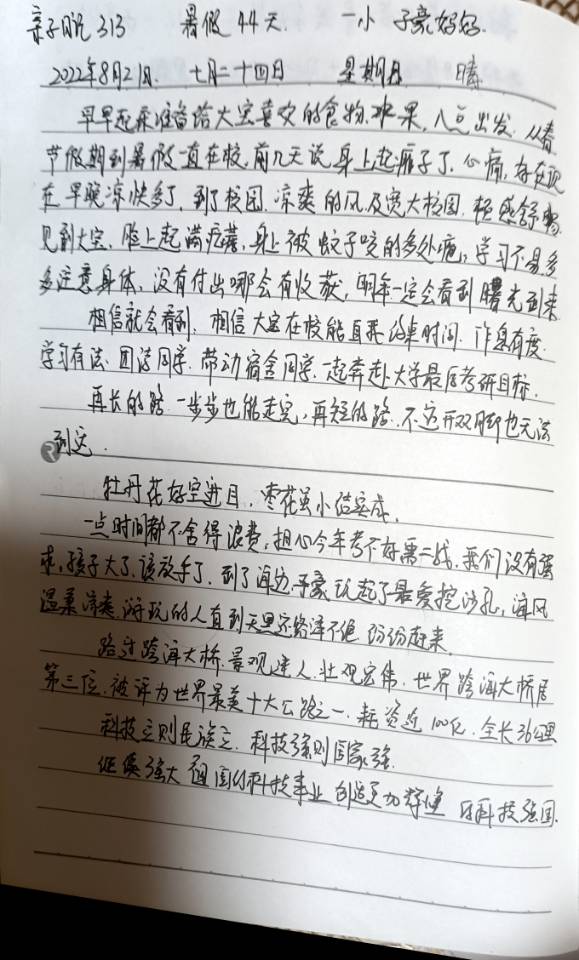 亲子日记 313 暑假 44天. 一小 子豪妈妈.
2022年8月21日. 七月二十四日 星期日 晴
早早起来准备给大宝喜欢的食物.水果,八点出发.从春
节假期到暑假一直在校,前几天说身上起癣子了.心痛,好在现
在早晚凉快多了,到了校园.凉爽的风及宽大校园.顿感舒畅
见到大宝.脸上起满疙瘩,身上被蚊子咬的多处疤,学习不易多
多注意身体,没有付出哪会有收获,明年一定会看到曙光到来
相信就会看到.相信大宝在校能自我约束时间.作息有度.
学习有法.团结同学.带动宿舍同学.一起奔赴大学最后考研目标.
再长的路.一步步也能走完,再短的路.不迈开双脚也无法
到达.
牡丹花好空进目,枣花虽小结实成.
一点时间都不舍得浪费,担心今年考不好需二战,我们没有强
求,孩子大了.该放手了.到了海边.子豪玩起了最爱挖沙孔,海风
温柔凉爽.游玩的人直到天黑还络泽不绝 纷纷赶来.
路过跨海大桥.景观迷人.壮观宏伟.世界跨海大桥居
第三位.被评为世界最美十大公路之一.耗资近100亿.全长36公里
科技立则民族立.科技强则国家强.
祖国的科技事业创造更加辉煌 科技强国.